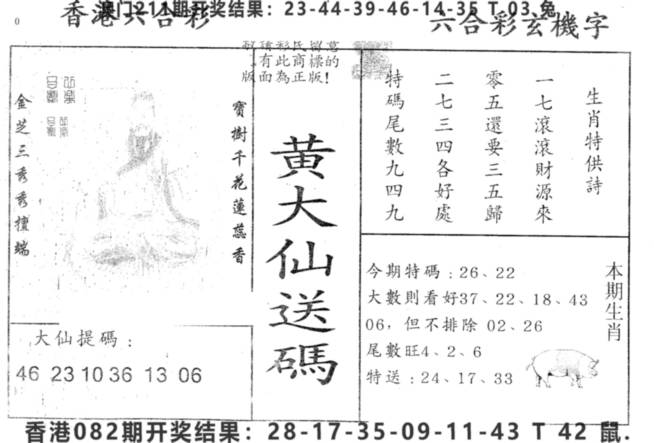 香港六合彩
澳门211期开奖结果：23-44-39-46-14-35 T 03 兔
六合彩玄機字
敬請彩民留意
有此商標的
版面為正版!
金芝三秀秀檀端
寶樹千花蓮蕊香
大仙提碼：
46 23 10 36 13 06
黃大仙送碼
生肖特供詩
一七滾滾財源來
零五還要三五歸
二七三四各好處
特碼尾數九四九
今期特碼：26、22
大數則看好37、22、18、43
06，但不排除 02、26
尾數旺4、2、6
特送：24、17、33
本期生肖
香港082期开奖结果：28-17-35-09-11-43 T 42 鼠.